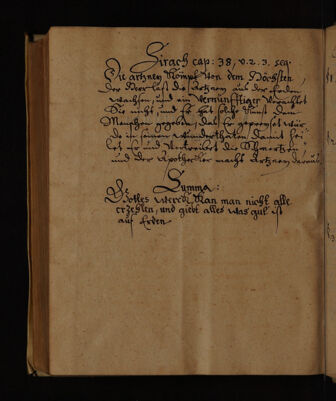 Sirach cap: 38, v. 2. 3. seq.
Die artzney kömpt von dem Höchsten,
der Herr lest die Artzney aus der Erden
wachsen, und ein Vernünfftiger verachtet
Sie nicht, und Er hat solche Kunst dem
Menschen gegeben, das Er gepreiset würde
in seinen Wunderthaten, damit hei
let Er und vertreibet die Schmertzen,
und der Apothecker macht Artzney daraus.
Summa:
Gottes werck kan man nicht alle
erzehlen, und giebt alles was gut ist
auf Erden